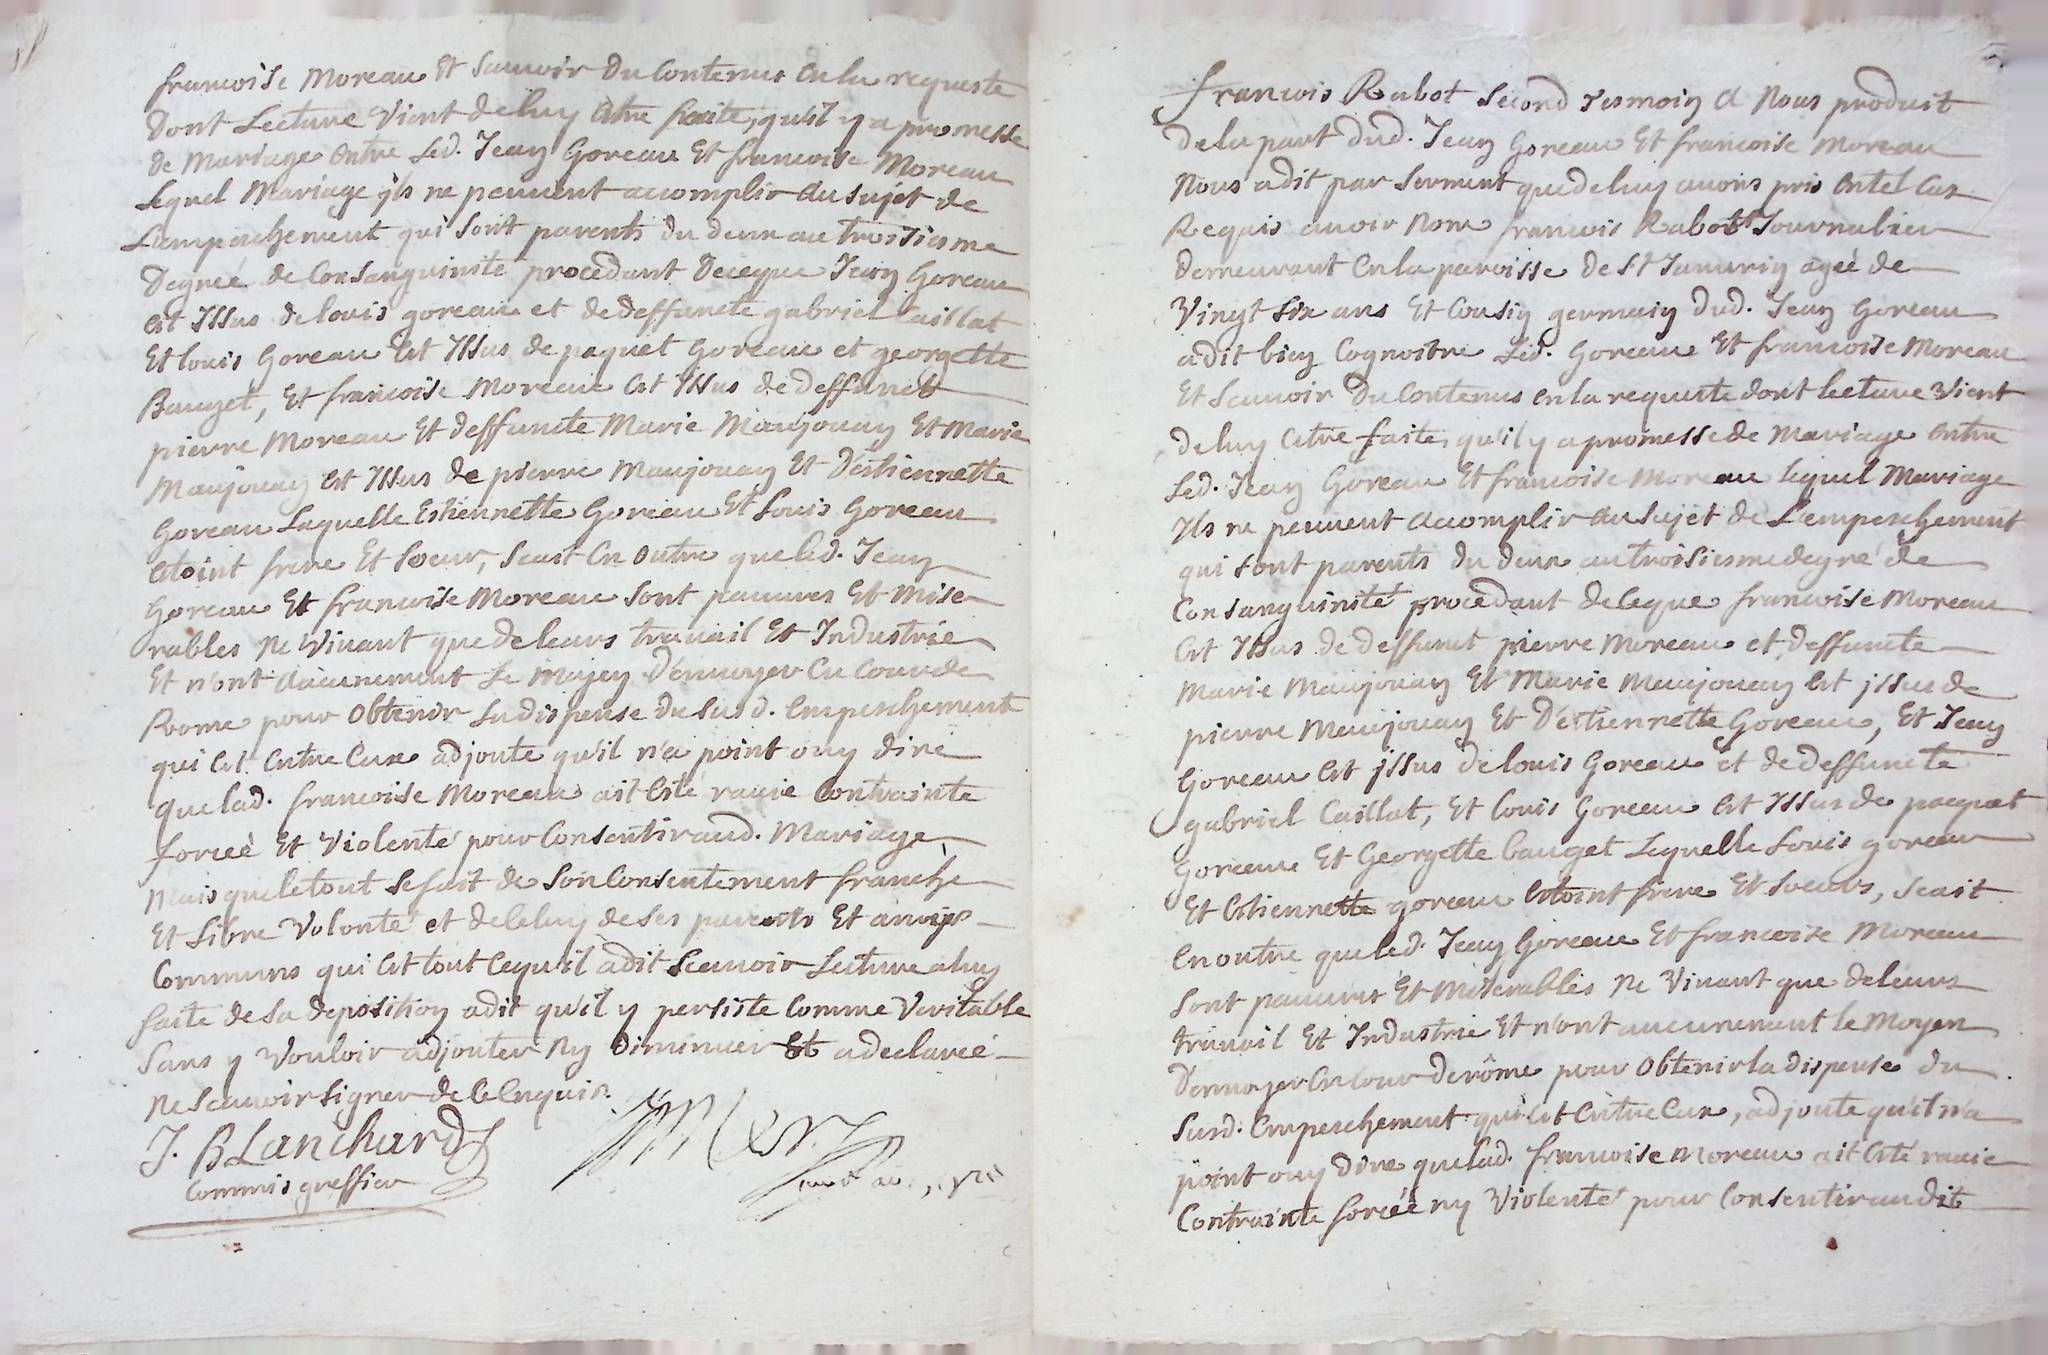 francoise Moreau Et scauoir du Contenus En la requeste
dont Lecture Vient de luy Estre faitte, qu'il y a promesse
de Mariage Entre Led. Jean Goreau Et francoise Moreau
Lequel Mariage jls ne peuuent accomplir au sujet de
L'empeschement qui sont parents du deux au troisiesme
degreé de Consanguinité procedant deceque Jean Goreau
Est Issus de louis goreau et de deffuncte gabriel Caillat
Et louis Goreau Est Issus de paquet Goreau et georgette
Bauget, Et francoise Moreau Est Issus de deffunct
pierre Moreau Et deffuncte Marie Maujouan Et Marie
Maujouan Est Issus de pierre Maujouan Et D'estiennette
Goreau Laquelle Estiennette Goreau Et Louis Goreau
Estoint frere Et soeur, scait En outre que led. Jean
Goreau Et francoise Moreau sont pauures Et mise-
rables ne Viuant que de leurs trauail Et Industrie
Et n'ont aucunement Le moyen D'enuoyer En Cour de
Rome pour obtenir La dispense du susd. Empeschement
qui Est Entre Eux adjoute qu'il n'a point ouy dire
que lad. francoise Moreau ait Esté rauie Contrainte
forceé Et Violenté pour Consentir aud. Mariage
mais que le tout se fait de son Consentement franche
Et Libre Volonté et de celuy de ses parents Et amys
Communs qui Est tout ce qu'il a dit scauoir Lecture a luy
faite de sa deposition a dit qu'il y persiste Comme Veritable
sans y Vouloir adjouter ny diminuer Et a declareé
ne scauoir signer de ce Enquis.
J. BLanchard
Commis greffier
francois Rabot second tesmoin A Nous produit
de la part dud. Jean Goreau Et francoise Moreau
Nous a dit par serment que de luy auons pris En tel Cas
Requis auoir Nom francois Rabot Journalier
demeurant En la paroisse de St Janurin ageé de
Vingt six ans Et Cousin germain dud. Jean Goreau
a dit bien Cognoitre Led. Goreau Et francoise Moreau
Et scauoir du Contenus En la requeste dont lecture Vient
de luy Estre faite, qu'il y a promesse de Mariage Entre
Led. Jean Goreau Et francoise Moreau lequel Mariage
Ils ne peuuent acomplir au sujet de L'empeschement
qui sont parents du deux au troisiesme degré de
Consanguinité procedant de ceque francoise Moreau
Est Issus de deffunct pierre Moreau et deffuncte
Marie Maujouan Et Marie Maujouan Est jssus de
pierre Maujouan Et D'estiennette Goreau, Et Jean
Goreau Est jssus de louis Goreau et de deffuncte
gabriel Caillat, Et louis Goreau Est Issus de pacquet
Goreau Et Georgette bauget Lequelle Louis goreau
Et Estiennette goreau Estoint frere Et soeurs, scait
En outre que led. Jean Goreau Et francoise Moreau
sont pauures Et miserables ne Viuant que de leurs
trauail Et Industrie Et n'ont aucunement le moyen
D'enuoyer En Cour de rôme pour obtenir la dispense du
susd. Empeschement qui Est Entre Eux, adjoute qu'il n'a
point ouy dire que lad. francoise Moreau ait Esté rauie
Contrainte forceé ny Violenté pour Consentir audit